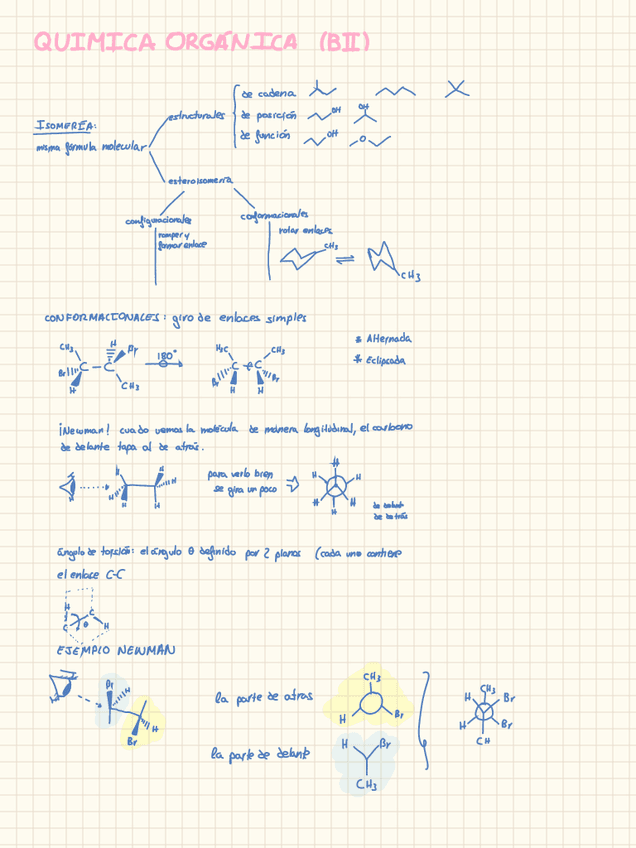 QUIMICA ORGÁNICA (BII)
ISOMERÍA:
misma fórmula molecular
estructurales
de cadena
de posición
OH
OH
de función
OH
O
estereoisomería
configuracionales
romper y
formar enlace
conformacionales
rotar enlaces
CH3
CH3
CONFORMACIONALES: giro de enlaces simples
CH3
H
Br
Br
C - C
H
CH3
180°
H3C
CH3
C C
Br
H
H
Br
* Alternada
* Eclipsada
¡Newman! cuado vemos la molécula de manera longitudinal, el carbono
de delante tapa al de atrás.
para verlo bien
se gira un poco
H
H
H
H
H
H
H
H
H
H
H
de delant
de detrás
ángulo de torsión: el ángulo θ definido por 2 planos (cada uno contiene
el enlace C-C
H
C
C
θ
H
EJEMPLO NEWMAN
Br
H
H
Br
la parte de atras
CH3
H
Br
la parte de delante
H
Br
CH3
CH3
H
Br
H
Br
CH